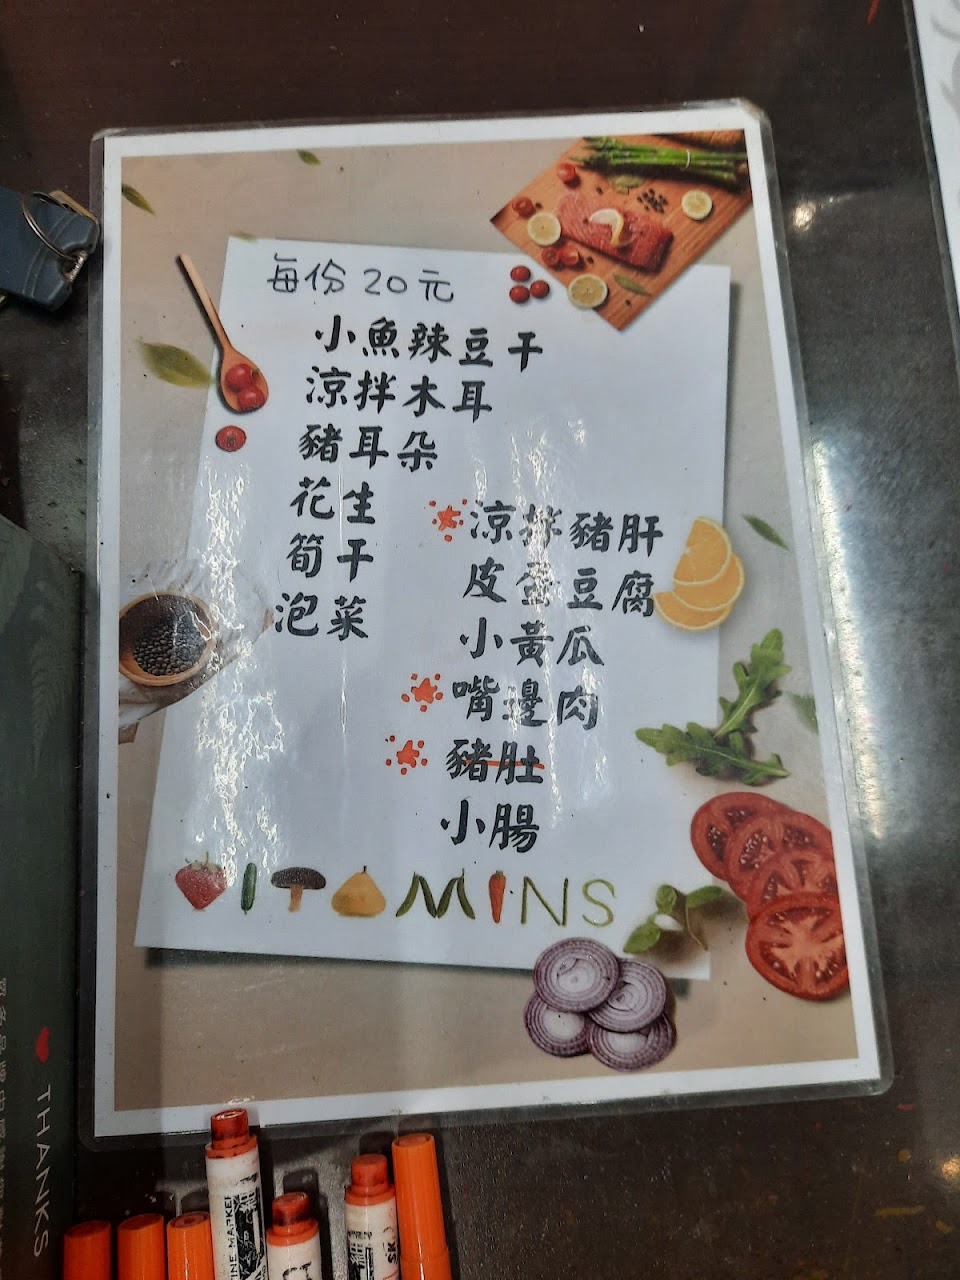 每份20元
小魚辣豆干
涼拌木耳
豬耳朵
花生
筍干
泡菜
涼拌豬肝
皮蛋豆腐
小黃瓜
嘴邊肉
豬肚
小腸
VITAMINS
THANKS